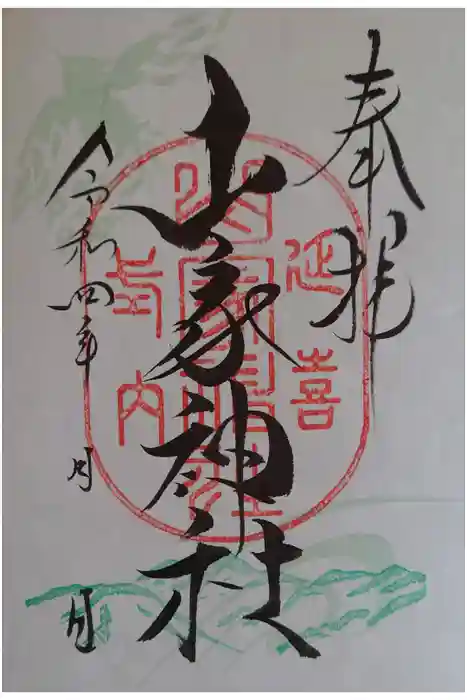 奉拝
延喜
山家神社
式内
令和四年 月 日